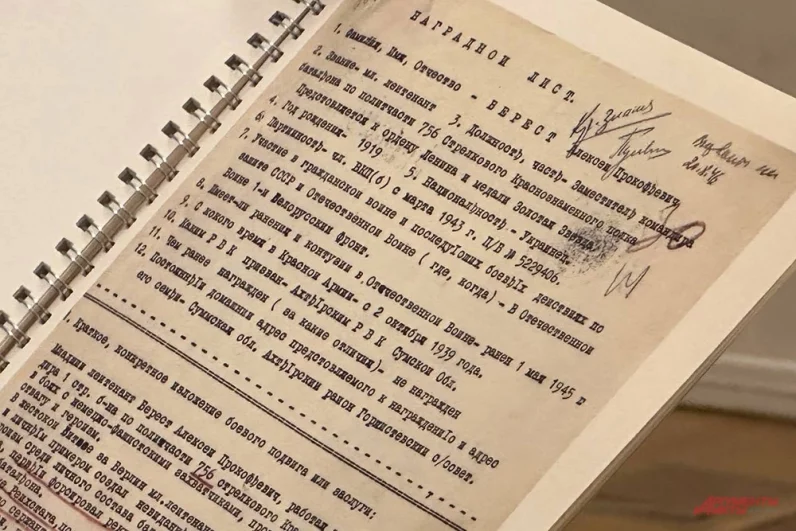 НАГРАДНОЙ ЛИСТ.
1. Фамилия, Имя, Отчество - БЕРЕСТ Алексей Прокофьевич
2. Звание- мл. лейтенант 3. Должность, часть- Заместитель командира
батальона по политчасти 756 Стрелкового Краснознаменного полка
Представляется к ордену Ленина и медали Золотая Звезда.
4. Год рождения- 1919 5. Национальность - Украинец
6. Партийность- чл. ВКП(б) с марта 1943 г. П/Б № 5229406.
7. Участие в гражданской войне и последующих боевых действиях по
защите СССР и Отечественной Войне ( где, когда) - В Отечественной
Войне 1-й Белорусский фронт.
8. Имеет-ли ранения и контузии в Отечественной Войне- ранен 1 мая 1945 г
9. С какого время в Красной Армии- с 2 октября 1939 года.
10. Каким Р В К призван- Ахтырским Р В К Сумской Обл.
11. Чем ранее награжден ( за какие отличия)- не награжден
12. Постоянный домашний адрес представляемого к награждению и адрес
его семьи- Сумская обл, Ахтырский район Горшистевский с/совет.
Краткое, конкретное изложение боевого подвига или заслуги:
Младший лейтенант Берест Алексей Прокофьевич, работая
дира 1 стр. б-на по политчасти 756 стрелкового
боях с немецко-фашистскими захватчиками,
отвагу и героизм.
В жестокой битве за Берлин мл.лейтенант
и личным примером создал
среди личного состава
форсировал
батальона.
Рейхстага,